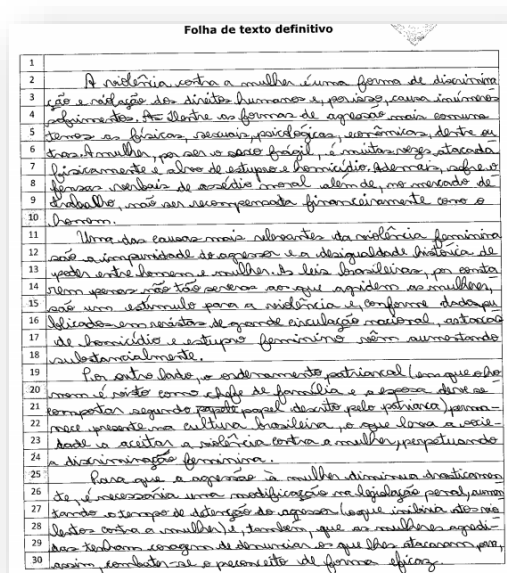 Folha de texto definitivo
1
2 A violência contra a mulher é uma forma de discrimina
3 ção e violação dos direitos humanos e, por isso, causa inúmeros
4 sofrimentos. as formas de agressão mais comuns
5 temos as físicas, sexuais, psicológicas, econômicas, dentre ou
6 tras. A mulher, por ser o sexo frágil, é muitas vezes atacada
7 fisicamente e alvo de estupro e homicídio. Ademais, sofre o
8 fensas verbais de assédio moral além de, no mercado de
9 trabalho, não ser recompensada financeiramente como o
10 homem.
11 Uma das causas mais relevantes da violência feminina
12 são a impunidade do agressor e a desigualdade histórica de
13 poder entre homem e mulher. As leis brasileiras, por conta
14 rem penas não tão severas aos que agridem as mulheres,
15 são um estímulo para a violência e, conforme dados pu
16 blicados em revistas de grande circulação nacional, as taxas
17 de homicídio e estupro feminino vêm aumentando
18 substancialmente.
19 Por outro lado, o ordenamento patriarcal (em que o ho
20 mem é visto como chefe de família e a esposa deve se
21 comportar segundo papel descrito pelo patriarca) perma-
22 nece presente na cultura brasileira, o que leva a socie-
23 dade a aceitar a violência contra a mulher, perpetuando
24 a discriminação feminina.
25 Para que a agressão à mulher diminua drasticamen
26 te, é necessária uma modificação na legislação penal, aumen
27 tando o tempo de detenção do agressor (o que inibiria atos vio
28 lentos contra a mulher) e, também, que as mulheres agredi-
29 das tenham coragem de denunciar os que lhes atacaram para,
30 assim, combater-se o preconceito de forma eficaz.